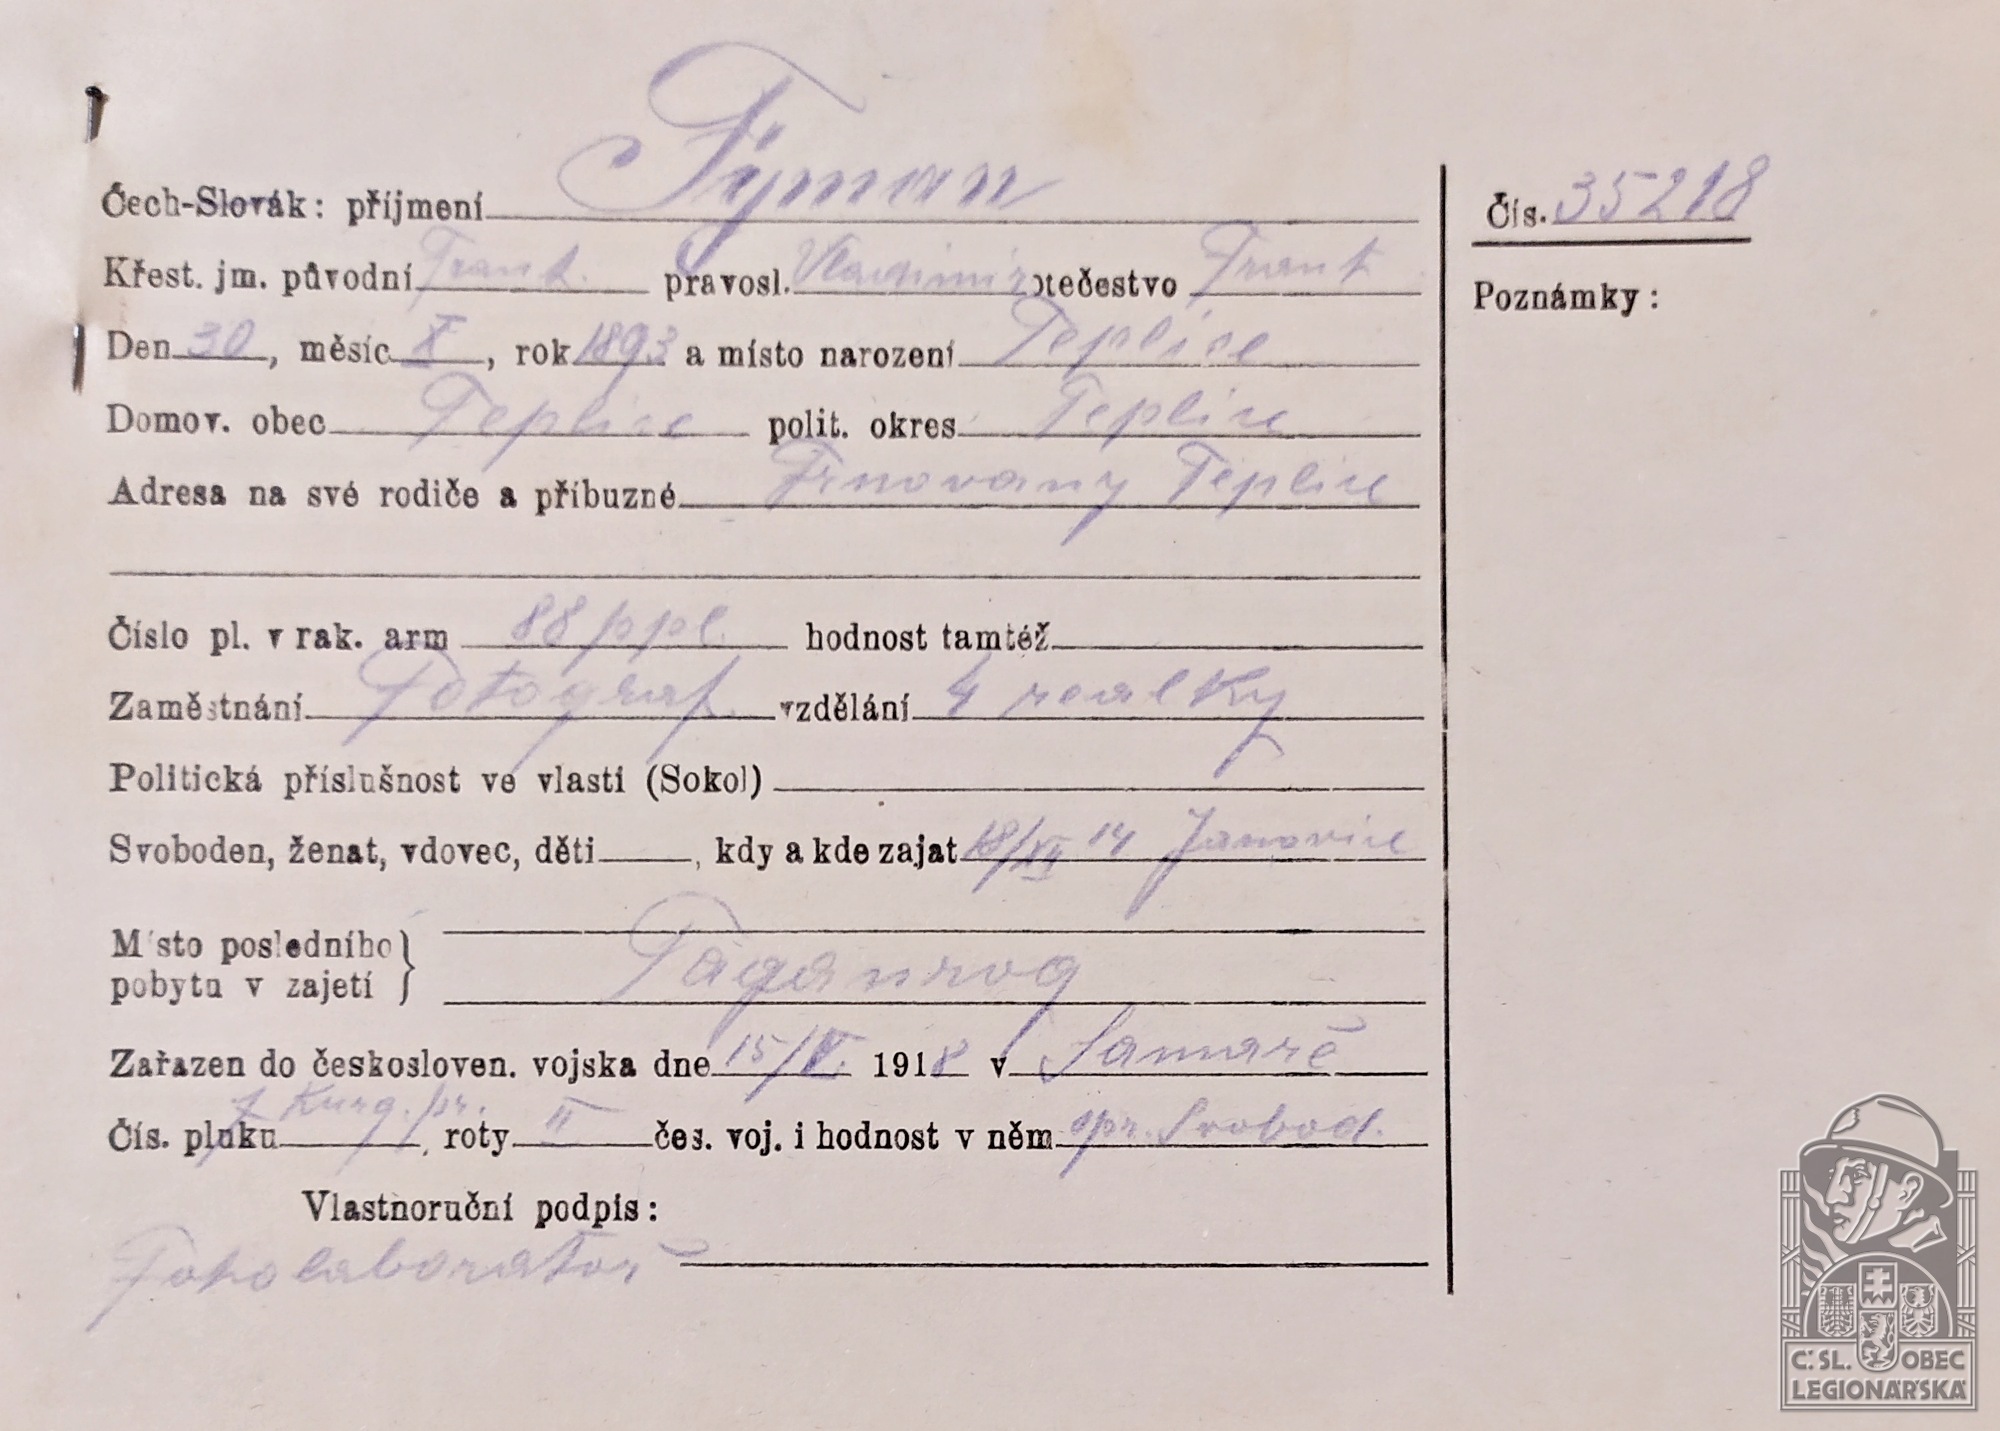 Čech-Slovák: příjmení Týman
Čís. 35218
Křest. jm. původní Frant. pravosl. Vladimir otečestvo Frant.
Poznámky:
Den 30, měsíc X, rok 1893 a místo narození Teplice
Domov. obec Teplice polit. okres Teplice
Adresa na své rodiče a příbuzné Trnovany Teplice
Číslo pl. v rak. arm 88 ppl. hodnost tamtéž
Zaměstnání Fotograf. vzdělání 4 realky
Politická příslušnost ve vlasti (Sokol)
Svoboden, ženat, vdovec, děti , kdy a kde zajat 18/XII 14 Janovice
Místo posledního
pobytu v zajetí } Taganrog
Zařazen do českosloven. vojska dne 15/V. 1918 v Samaře
7 Kurg. pr.
Čís. pluku , roty II čes. voj. i hodnost v něm Svobod.
Vlastnoruční podpis:
Fotolaboratoř
Č. SL. OBEC
LEGIONÁŘSKÁ